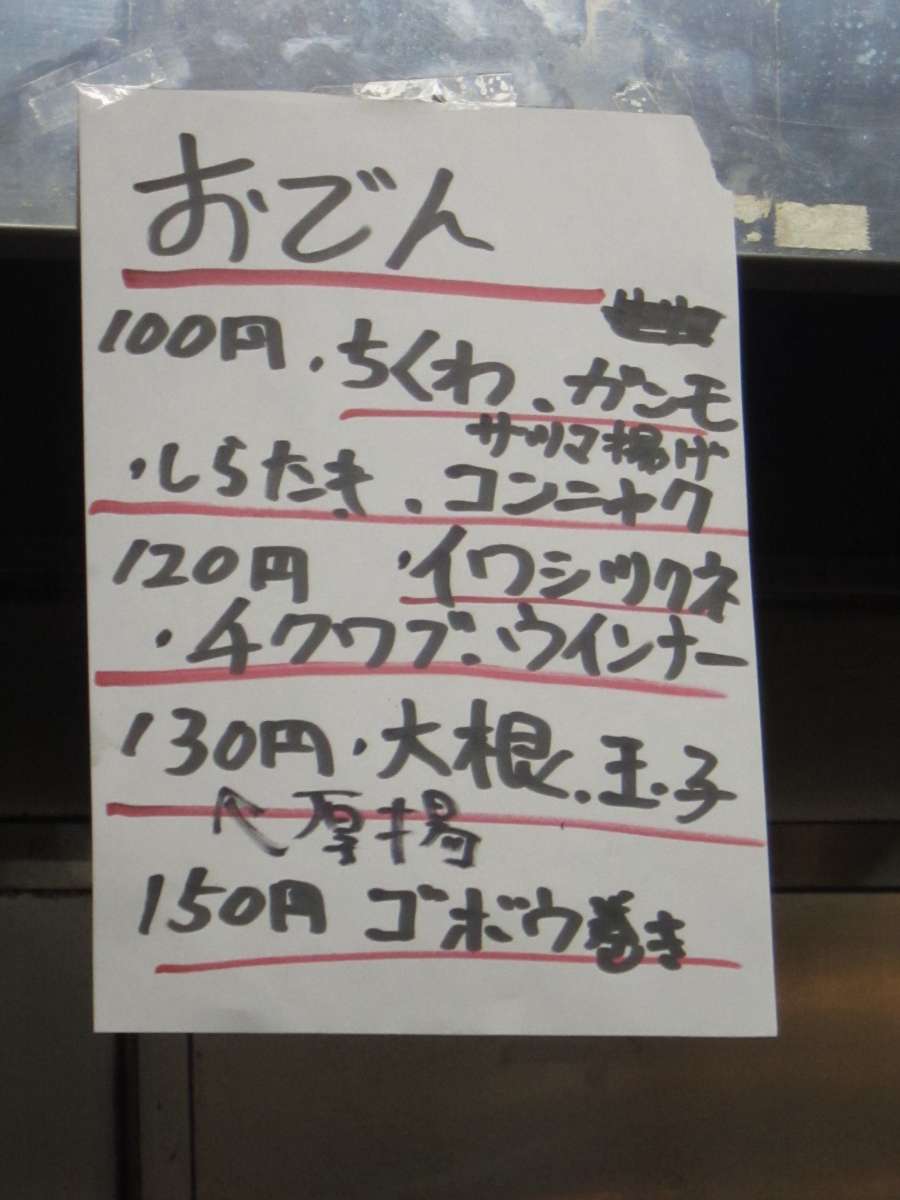 おでん
100円・ちくわ・ガンモ
サツマ揚げ
・しらたき・コンニャク
120円 ・イワシツクネ
・チクワブ・ウインナー
130円・大根・玉子
↖厚揚
150円 ゴボウ巻き